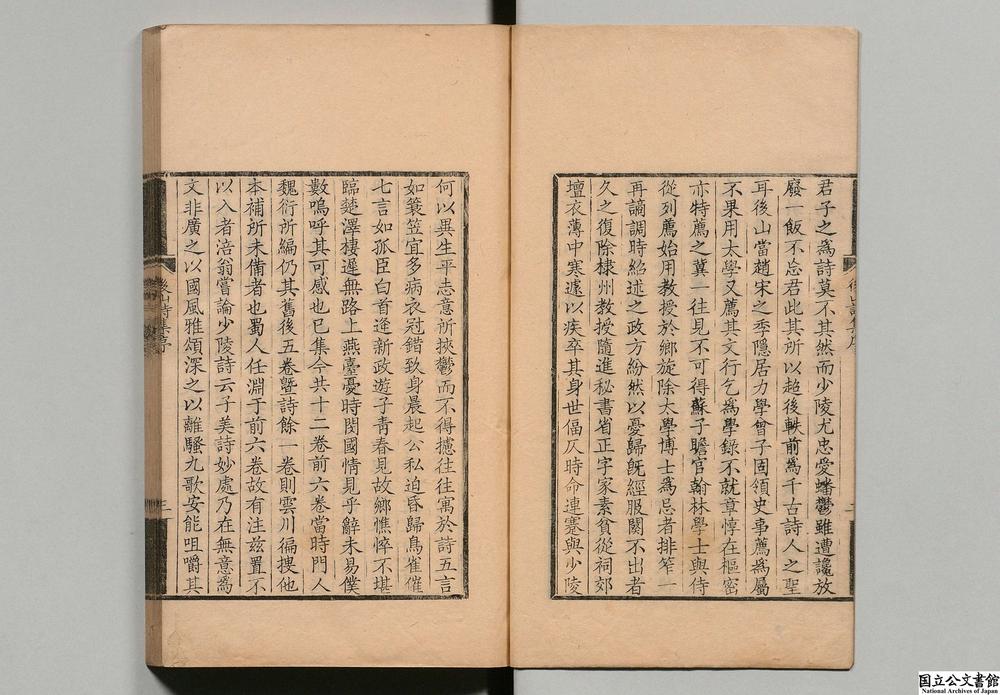 君子之爲詩莫不其然而少陵尤忠愛蟠鬱雖遭讒放
廢一飯不忘君此其所以超後軼前爲千古詩人之聖
耳後山當趙宋之季隱居力學曾子固領史事薦爲屬
不果用太學又薦其文行乞爲學錄不就章惇在樞密
亦特薦之冀一往見不可得蘇子瞻官翰林學士與侍
從列薦始用教授於鄉旋除太學博士爲忌者排笮一
再謫調時紹述之政方紛然以憂歸旣經服闋不出者
久之復除棣州教授隨進秘書省正字家素貧從祠郊
壇衣薄中寒遽以疾卒其身世偪仄時命連蹇與少陵
何以異生平志意祈挾鬱而不得攄往往寓於詩五言
如簑笠宜多病衣冠錯致身晨起公私迫昏歸鳥雀催
七言如孤臣白首逢新政遊子青春見故鄉憔悴不堪
臨楚澤棲遲無路上燕臺憂時閔國情見乎辭未易僕
數嗚呼其可感也已集今共十二卷前六卷當時門人
魏衍所編仍其舊後五卷曁詩餘一卷則雲川徧搜他
本補所未備者也蜀人任淵于前六卷故有注玆置不
以入者涪翁嘗論少陵詩云子美詩妙處乃在無意爲
文非廣之以國風雅頌深之以離騷九歌安能咀嚼其
後山詩集序
三
国立公文書館
National Archives of Japan